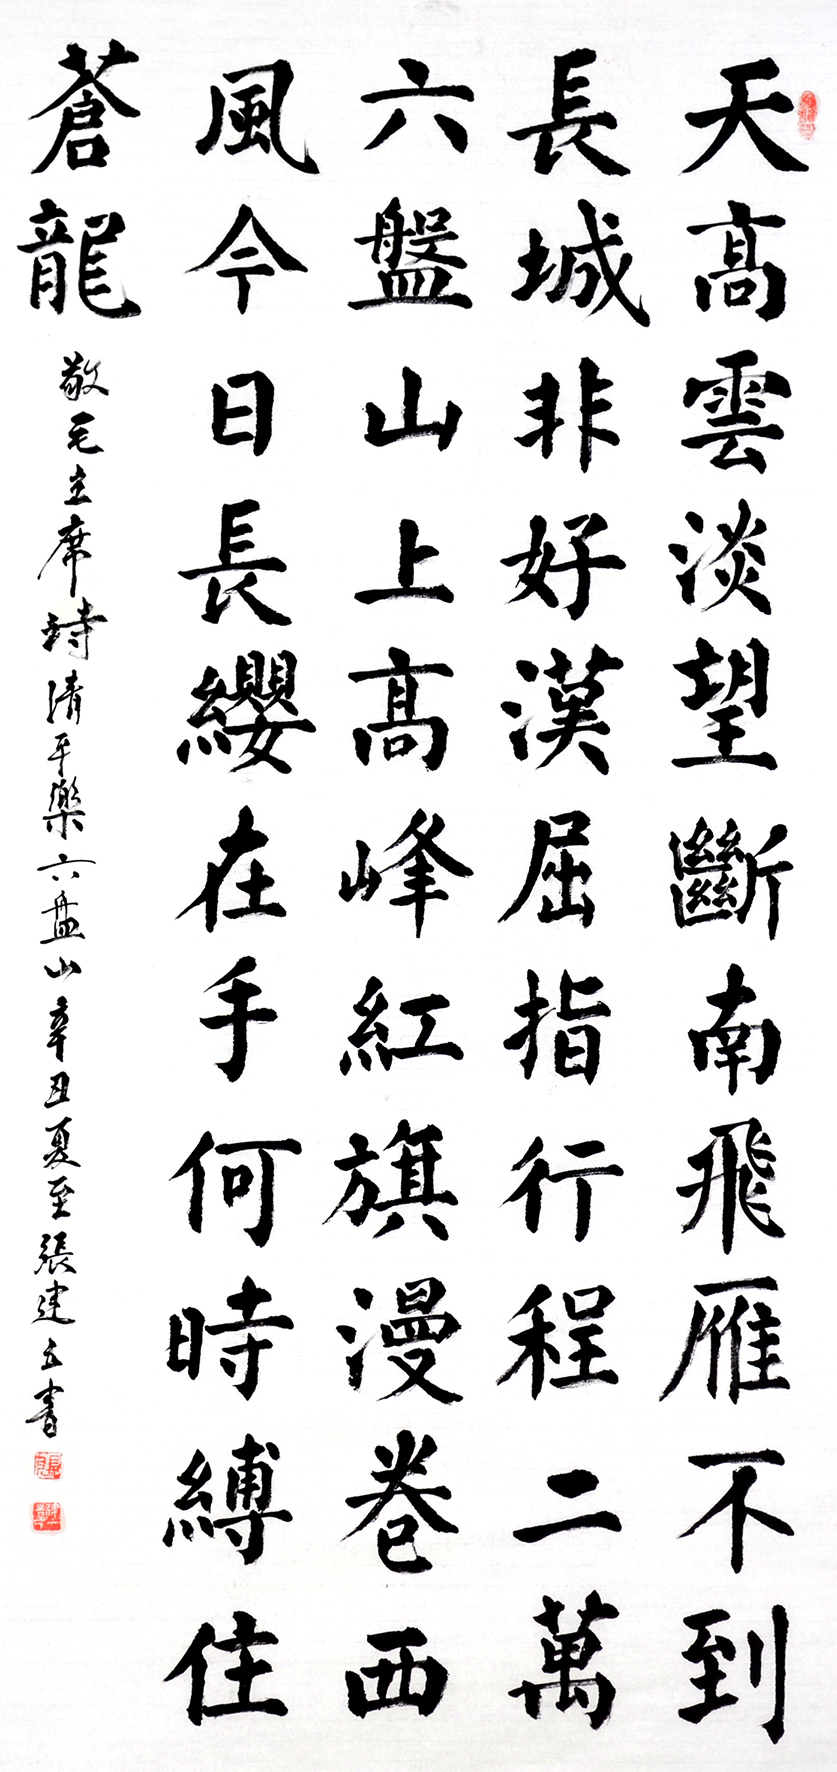 天高雲淡望斷南飛雁不到
長城非好漢屈指行程二萬
六盤山上高峰紅旗漫卷西
風今日長纓在手何時縛住
蒼龍
敬毛主席詩清平樂六盤山辛丑夏至張建立書